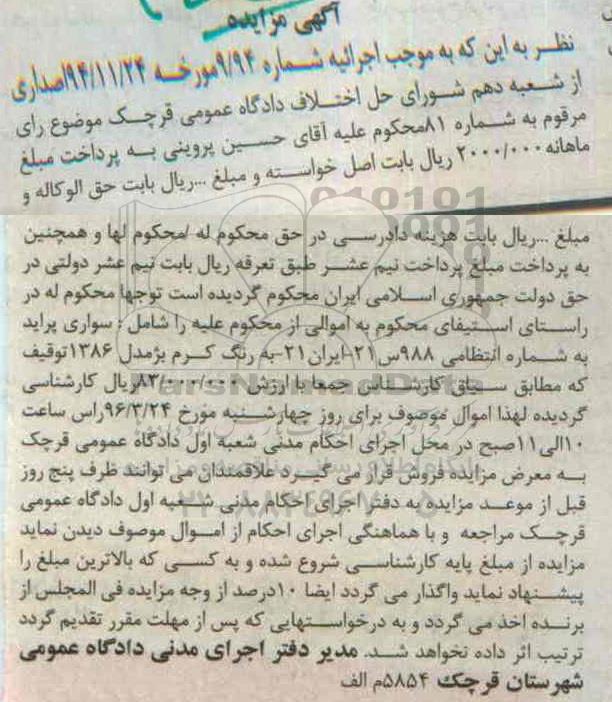 آگهی مزایده
نظر به این که به موجب اجرائیه شماره ۹/۹۴مورخه ۹۴/۱۱/۲۴اصداری
از شعبه دهم شورای حل اختلاف دادگاه عمومی قرچک موضوع رای
مرقوم به شماره ۸۱محکوم علیه آقای حسین پروینی به پرداخت مبلغ
ماهانه۲۰۰۰/۰۰۰ ریال بابت اصل خواسته و مبلغ ...ریال بابت حق الوکاله و
مبلغ ...ریال بابت هزینه دادرسی در حق محکوم له /محکوم لها و همچنین
به پرداخت مبلغ پرداخت نیم عشر طبق تعرفه ریال بابت نیم عشر دولتی در
حق دولت جمهوری اسلامی ایران محکوم گردیده است توجها محکوم له در
راستای استیفای محکوم به اموالی از محکوم علیه را شامل : سواری پراید
به شماره انتظامی ۹۸۸س۲۱-ایران۲۱-به رنگ کرم بژمدل ۱۳۸۶توقیف
که مطابق سیاق کارشناس جمعا با ارزش ۸۳/۰۰۰/۰۰۰ریال کارشناسی
گردیده لهذا اموال موصوف برای روز چهارشنبه مورخ ۹۶/۳/۲۴راس ساعت
۱۰الی۱۱صبح در محل اجرای احکام مدنی شعبه اول دادگاه عمومی قرچک
به معرض مزایده فروش قرار می گیرد علاقمندان می توانند ظرف پنج روز
قبل از موعد مزایده به دفتر اجرای احکام مدنی شعبه اول دادگاه عمومی
قرچک مراجعه و با هماهنگی اجرای احکام از اموال موصوف دیدن نماید
مزایده از مبلغ پایه کارشناسی شروع شده و به کسی که بالاترین مبلغ را
پیشنهاد نماید واگذار می گردد ایضا ۱۰درصد از وجه مزایده فی المجلس از
برنده اخذ می گردد و به درخواستهایی که پس از مهلت مقرر تقدیم گردد
ترتیب اثر داده نخواهد شد. مدیر دفتر اجرای مدنی دادگاه عمومی
شهرستان قرچک ۵۸۵۴م الف
ParsNamadData